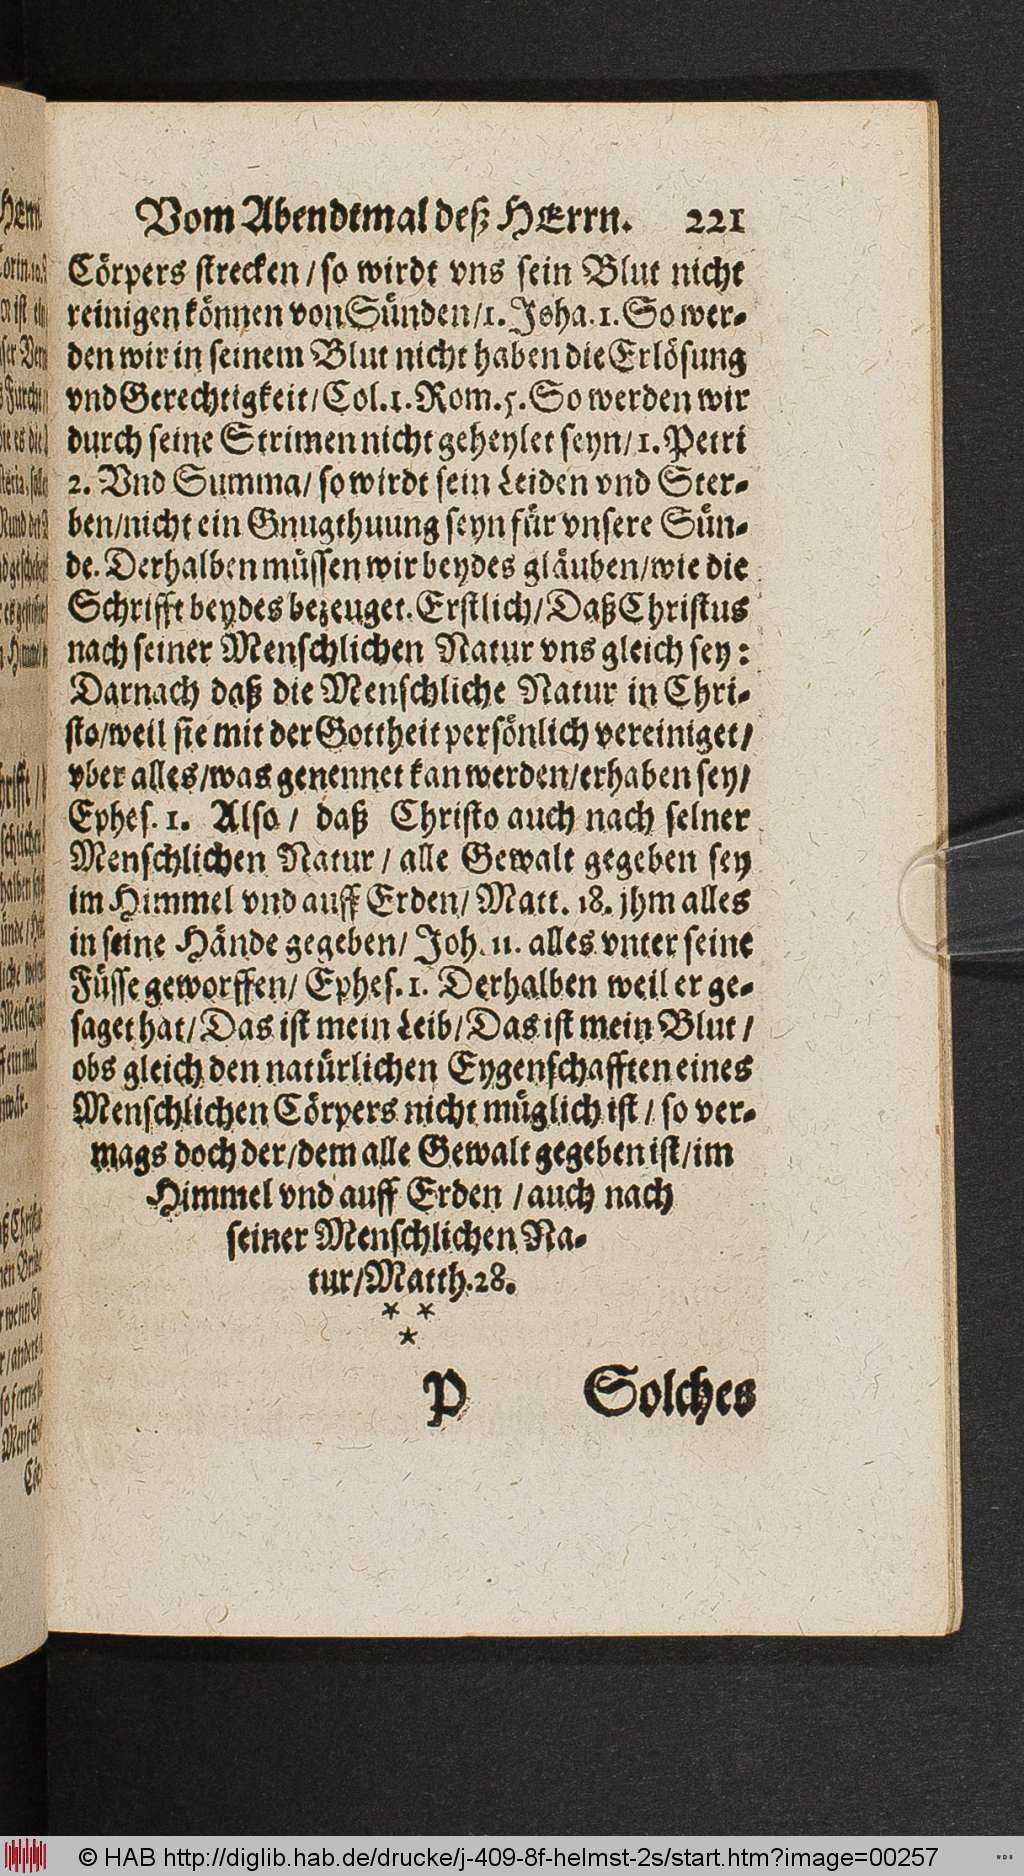 Vom Abendtmal deß HErrn. 221
Cörpers strecken / so wirdt vns sein Blut nicht
reinigen können von Sünden / 1. Joha. 1. So wer-
den wir in seinem Blut nicht haben die Erlösung
vnd Gerechtigkeit / Col. 1. Rom. 5. So werden wir
durch seine Strimen nicht geheylet seyn / 1. Petri
2. Vnd Summa / so wirdt sein Leiden vnd Ster-
ben / nicht ein Gnugthuung seyn für vnsere Sün-
de. Derhalben müssen wir beydes gläuben / wie die
Schrifft beydes bezeuget. Erstlich / Daß Christus
nach seiner Menschlichen Natur vns gleich sey:
Darnach daß die Menschliche Natur in Chri-
sto / weil sie mit der Gottheit persönlich vereiniget /
vber alles / was genennet kan werden / erhaben sey /
Ephes. 1. Also / daß Christo auch nach seiner
Menschlichen Natur / alle Gewalt gegeben sey
im Himmel vnd auff Erden / Matt. 18. jhm alles
in seine Hände gegeben / Joh. 11. alles vnter seine
Füsse geworffen / Ephes. 1. Derhalben weil er ge-
saget hat / Das ist mein Leib / Das ist mein Blut /
obs gleich den natürlichen Eygenschafften eines
Menschlichen Cörpers nicht müglich ist / so ver-
mags doch der / dem alle Gewalt gegeben ist / im
Himmel vnd auff Erden / auch nach
seiner Menschlichen Na-
tur / Matth. 28.
* *
*
P Solches
© HAB http://diglib.hab.de/drucke/j-409-8f-helmst-2s/start.htm?image=00257